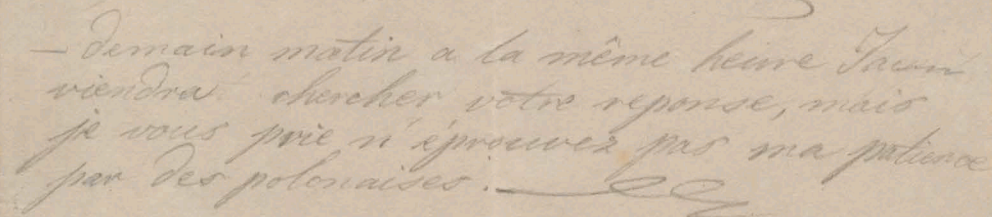 — demain matin a la même heure
viendra chercher votre reponse, mais
je vous prie n'éprouvez pas ma patience
par des polonaises.